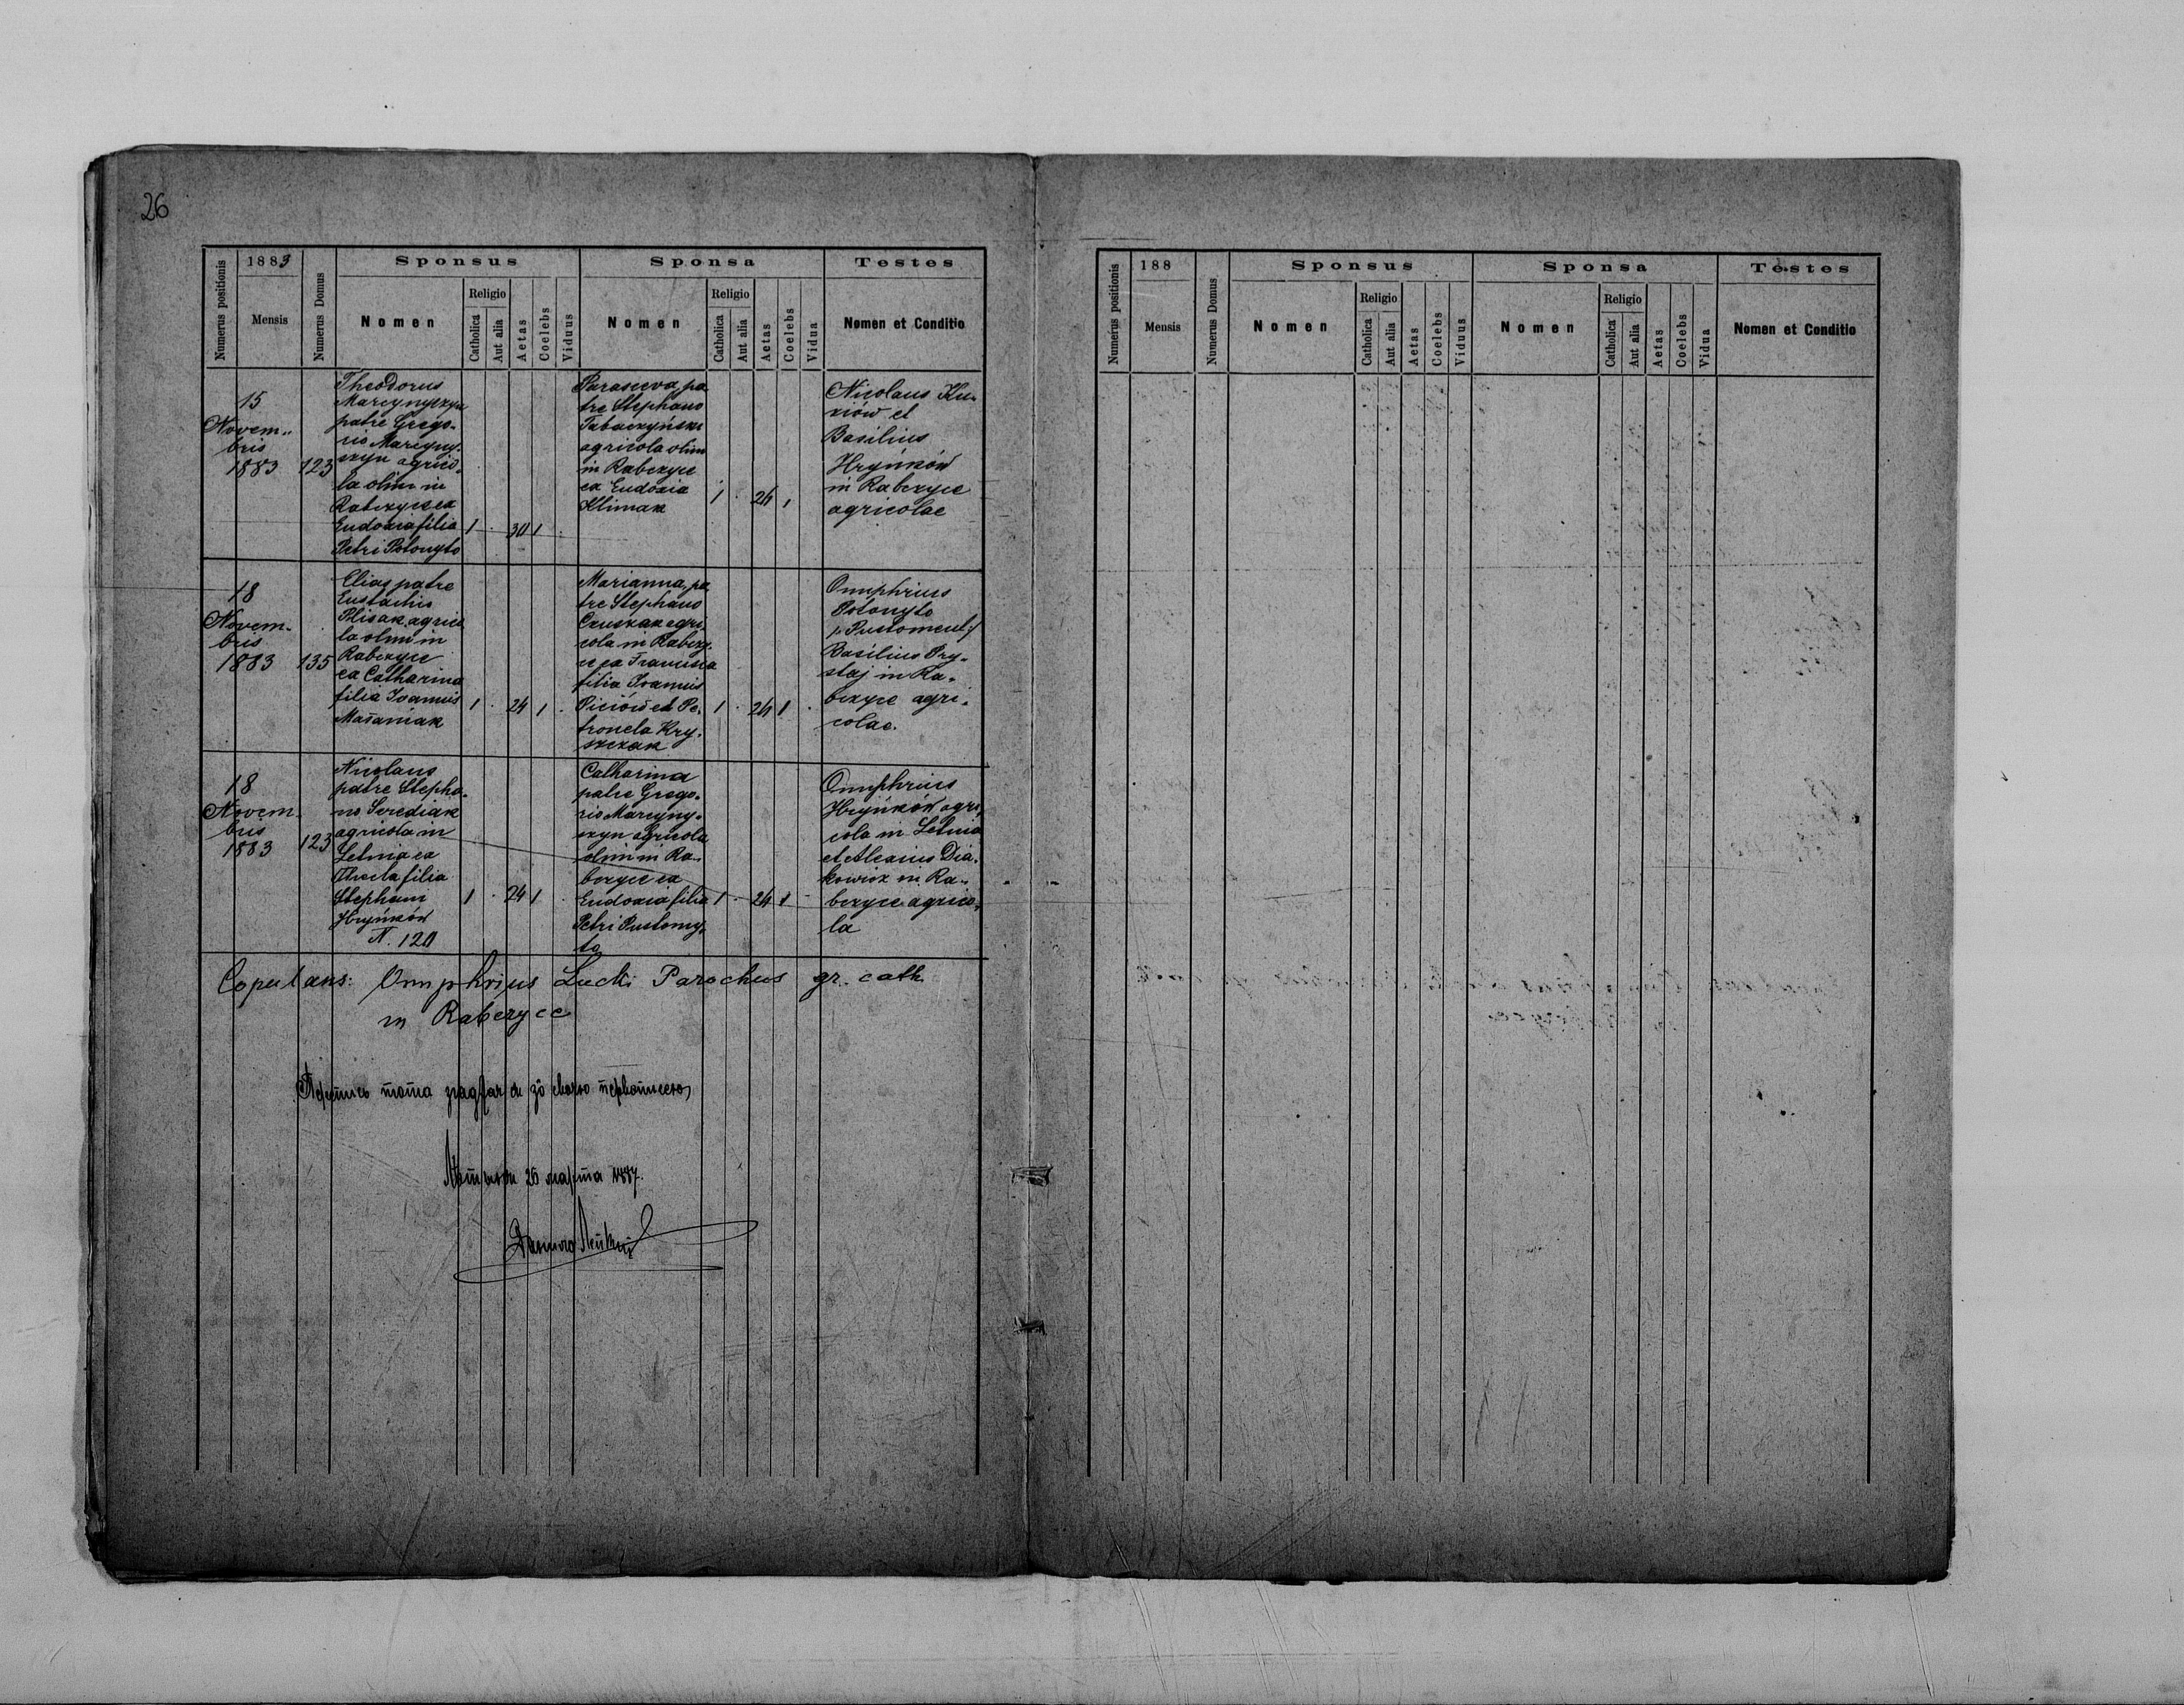 26
1883
Sponsus
Sponsa
Testes
Numerus positionis
Mensis
Numerus Domus
Nomen
Religio
Catholica
Aut alia
Aetas
Coelebs
Viduus
Nomen
Religio
Catholica
Aut alia
Aetas
Coelebs
Vidua
Nomen et Conditio
15
Novem-
bris
1883
123
Theodorus
Marcynyszyn
patre Grego-
rio Marcyny-
szyn agrico-
la olim in
Rabczyce ex
Eudoxia filia
Petri
1 . 30 1 .
Parasceva, pa
tre Stephano
Tabaczyński
agricola olim
in Rabczyce
ex Eudoxia
Klimak
1 . 24 1
Nicolaus
et
Basilius
Hryńków
in Rabczyce
agricolae
18
Novem-
bris
1883
135
Elias patre
Eustachio
Plisak agrico
la olim in
Rabczyce
ex Catharina
filia Joannis
1 . 24 1 .
Marianna, pa
tre Stephano
agri
cola in Rabczy-
ce ex Francisca
filia Joannis
et Pe-
tronela Kry-
szczak
1 . 24 1 .
Onuphrius
Basilius Pry-
staj in Ra-
bczyce agri-
colae.
18
Novem-
bris
1883
123
Nicolaus
patre Stepha-
no Serediak
agricola in
Letnia ex
Thecla filia
Stephani
Hryńków
N. 120
1 . 24 1 .
Catharina
patre Grego-
rio Marcyny-
szyn agricola
olim in Ra-
bczyce ex
Eudoxia filia
Petri Pustomy-
to
1 . 24 1 -
Onuphrius
Hryńków agri-
cola in Letnia
et Alexius Dia-
kowicz in Ra-
bczyce agrico-
la
Copulans: Onuphrius Lucki Parochus gr. cath.
in Rabczyce
26 марта 1887.
188
Sponsus
Sponsa
Testes
Numerus positionis
Mensis
Numerus Domus
Nomen
Religio
Catholica
Aut alia
Aetas
Coelebs
Viduus
Nomen
Religio
Catholica
Aut alia
Aetas
Coelebs
Vidua
Nomen et Conditio